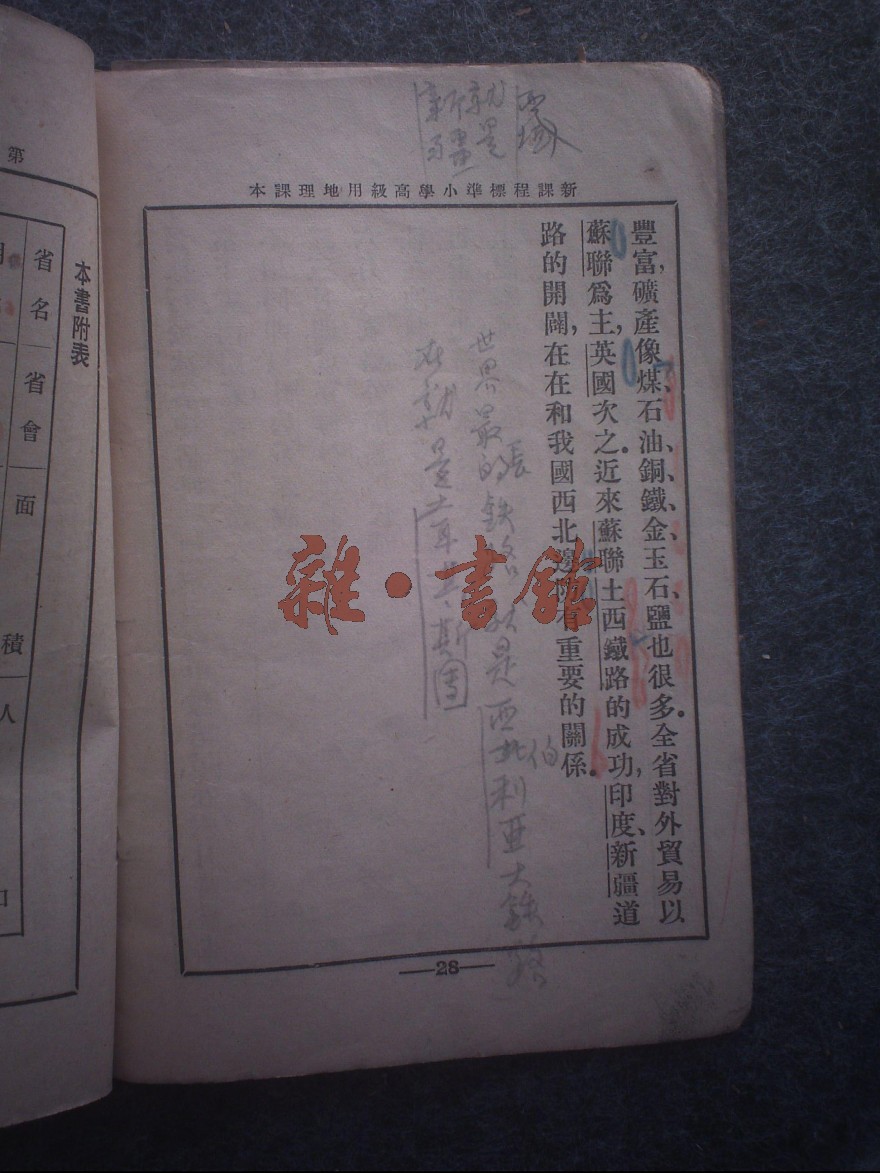 新課程標準小學高級用地理課本
西域
就是
新疆
豐富,礦產像煤、石油、銅、鐵、金、玉石、鹽也很多。全省對外貿易以
蘇聯爲主,英國次之。近來蘇聯土西鐵路的成功,印度、新疆道
路的開闢,在在和我國西北邊防有重要的關係。
世界最長的鉄路就是西伯利亞大鉄路
—28—
雜·書館
第
本書附表
省名
省會
面積
人口